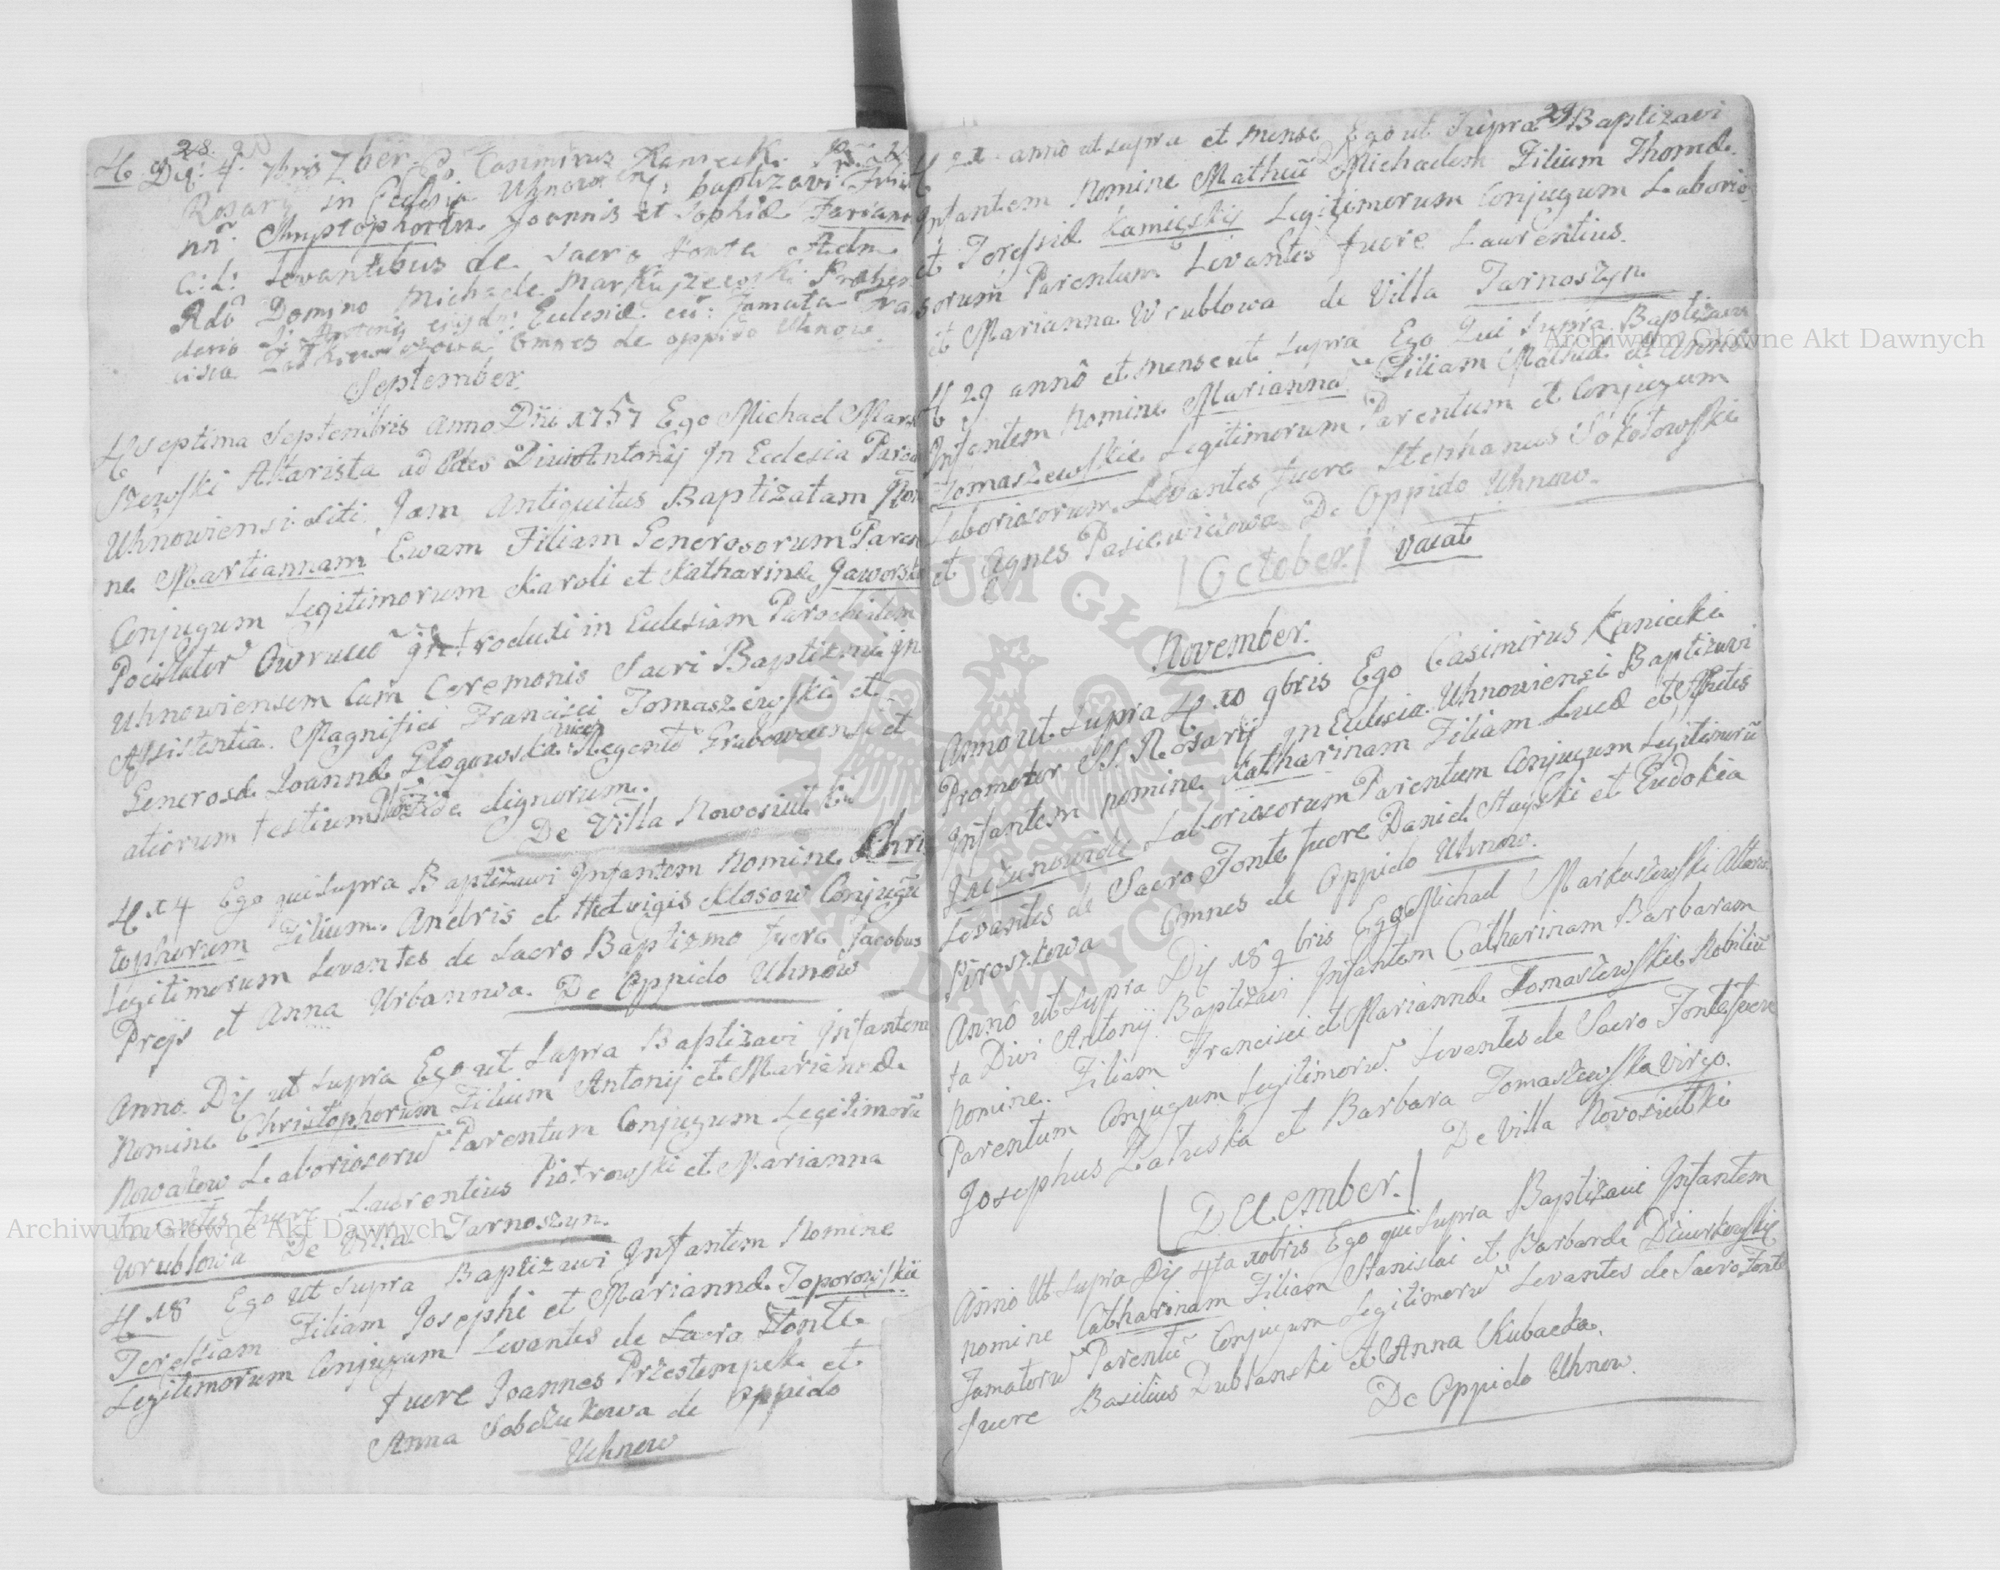 28.
Die 4 7bris Ego Casimirus Kaniecki
Rosarij in Ecclesia Uhnoviensi baptizavi
nñ: Chrystophorum Joannis et Sophiæ Farian
C:L: Levantibus de Sacro Fonte Adm
Rdo Domino Michaele Markuszewski
dario S. Antonij Ecclesiæ cũ: Famata
Omnes de oppido Uhnow
September.
Septima Septembris Anno Dñi 1757 Ego Michael Mark
szewski Altarista ad Ædes Divi Antonij Jn Ecclesia Paroch
Uhnowiensi Siti Jam Antiquitus Baptizatam Nomi
ne Martiannam Ewam Filiam Generosorum Paren
Conjugum Legitimorum Karoli et Katharinæ Jaworski
introducti in Ecclesiam Parochialem
Uhnowiensem Cum Ceremonis Sacri Baptizmi in
Assistentia Magnifici Francisci Tomaszewski et
Generosæ Joannæ Glogowska Regentõ Grabowecensi et
aliorum testium Fide dignorum.
De Villa Nowosiulki
14 Ego qui supra Baptizavi Infantem Nomine Chris
tophorum Filium Andris et Hedvigis Klosow Conjugũ
Legitimorum Levantes de Sacro Baptizmo fuere Jacobus
Prejs et Anna Urbanowa. De Oppido Uhnow
Anno Dij ut supra Ego ut Supra Baptizavi Infantem
Nomine Christophorum Filium Antonij et Mariannæ
Nowakow Laboriosorũ Parentum Conjugum Legitimorũ
Levantes fuere Laurentius Piotrowski et Marianna
Wrublowa De Villa Tarnoszyn.
18 Ego ut supra Baptizavi Infantem Nomine
Teressiam Filiam Josephi et Mariannæ Toporowskie
Legitimorum Conjugum Levantes de Sacro Fonte
fuere Joannes Przestempek et
Anna Sobczukowa de Oppido
Uhnow
29
21 anno ut supra et mense Ego ut Supra Baptizavi
Infantem Nomine Matheũ Michaelem Filium Thomæ
et Teressiæ Kamięskis Legitimorum Conjugum Laborio
sorum Parentum Levantes fuere Laurentius
et Marianna Wrublowa de Villa Tarnoszyn
29 annô et mense ut supra Ego Qui Supra Baptizavi
Infantem Nomine Mariannã Filiam Mathiæ et Annæ
Tomaszewskie Legitimorum Parentum et Conjugum
Laboriosorum Levantes fuere Stephanus Sokolowski
et Agnes Pasiewiczowa De Oppido Uhnow.
October. Vacat
November.
Anno ut supra 10 9bris Ego Casimirus Kaniecki
Promotor SS. Rosarij Jn Ecclesia Uhnowiensi Baptizavi
Infantem nomine Katharinam Filiam Lucæ et
Laboriosorum Parentum Conjugum Legitimorũ
Levantes de Sacro Fonte fuere Daniel et Eudokia
Piroszkowa Omnes de Oppido Uhnow.
Annô ut supra Dij 18 9bris Ego Michael Markuszewski Altaris
ta Divi Antonij Baptizavi Infantem Catharinam Barbaram
nomine. Filiam Francisci et Mariannæ Tomaszewskie Nobiliũ
Parentum Conjugum Legitimorũ Levantes de Sacro Fonte fuere
Josephus Zaluska et Barbara Tomaszewska Virgo.
De Villa Novosiulki
December.
Anno Ut supra Dij 4ta Xobris Ego qui supra Baptizavi Infantem
nomine Catharinam Filiam Stanislai et Barbaræ Dziurkowskie
Famatorũ Parentũ Conjugum Legitimorũ Levantes de Sacro Fonte
fuere Basilius Dublanski et Anna Kubacka.
De Oppido Uhnow.
Archiwum Główne Akt Dawnych
Archiwum Główne Akt Dawnych
ARCHIWUM GŁÓWNE AKT DAWNYCH